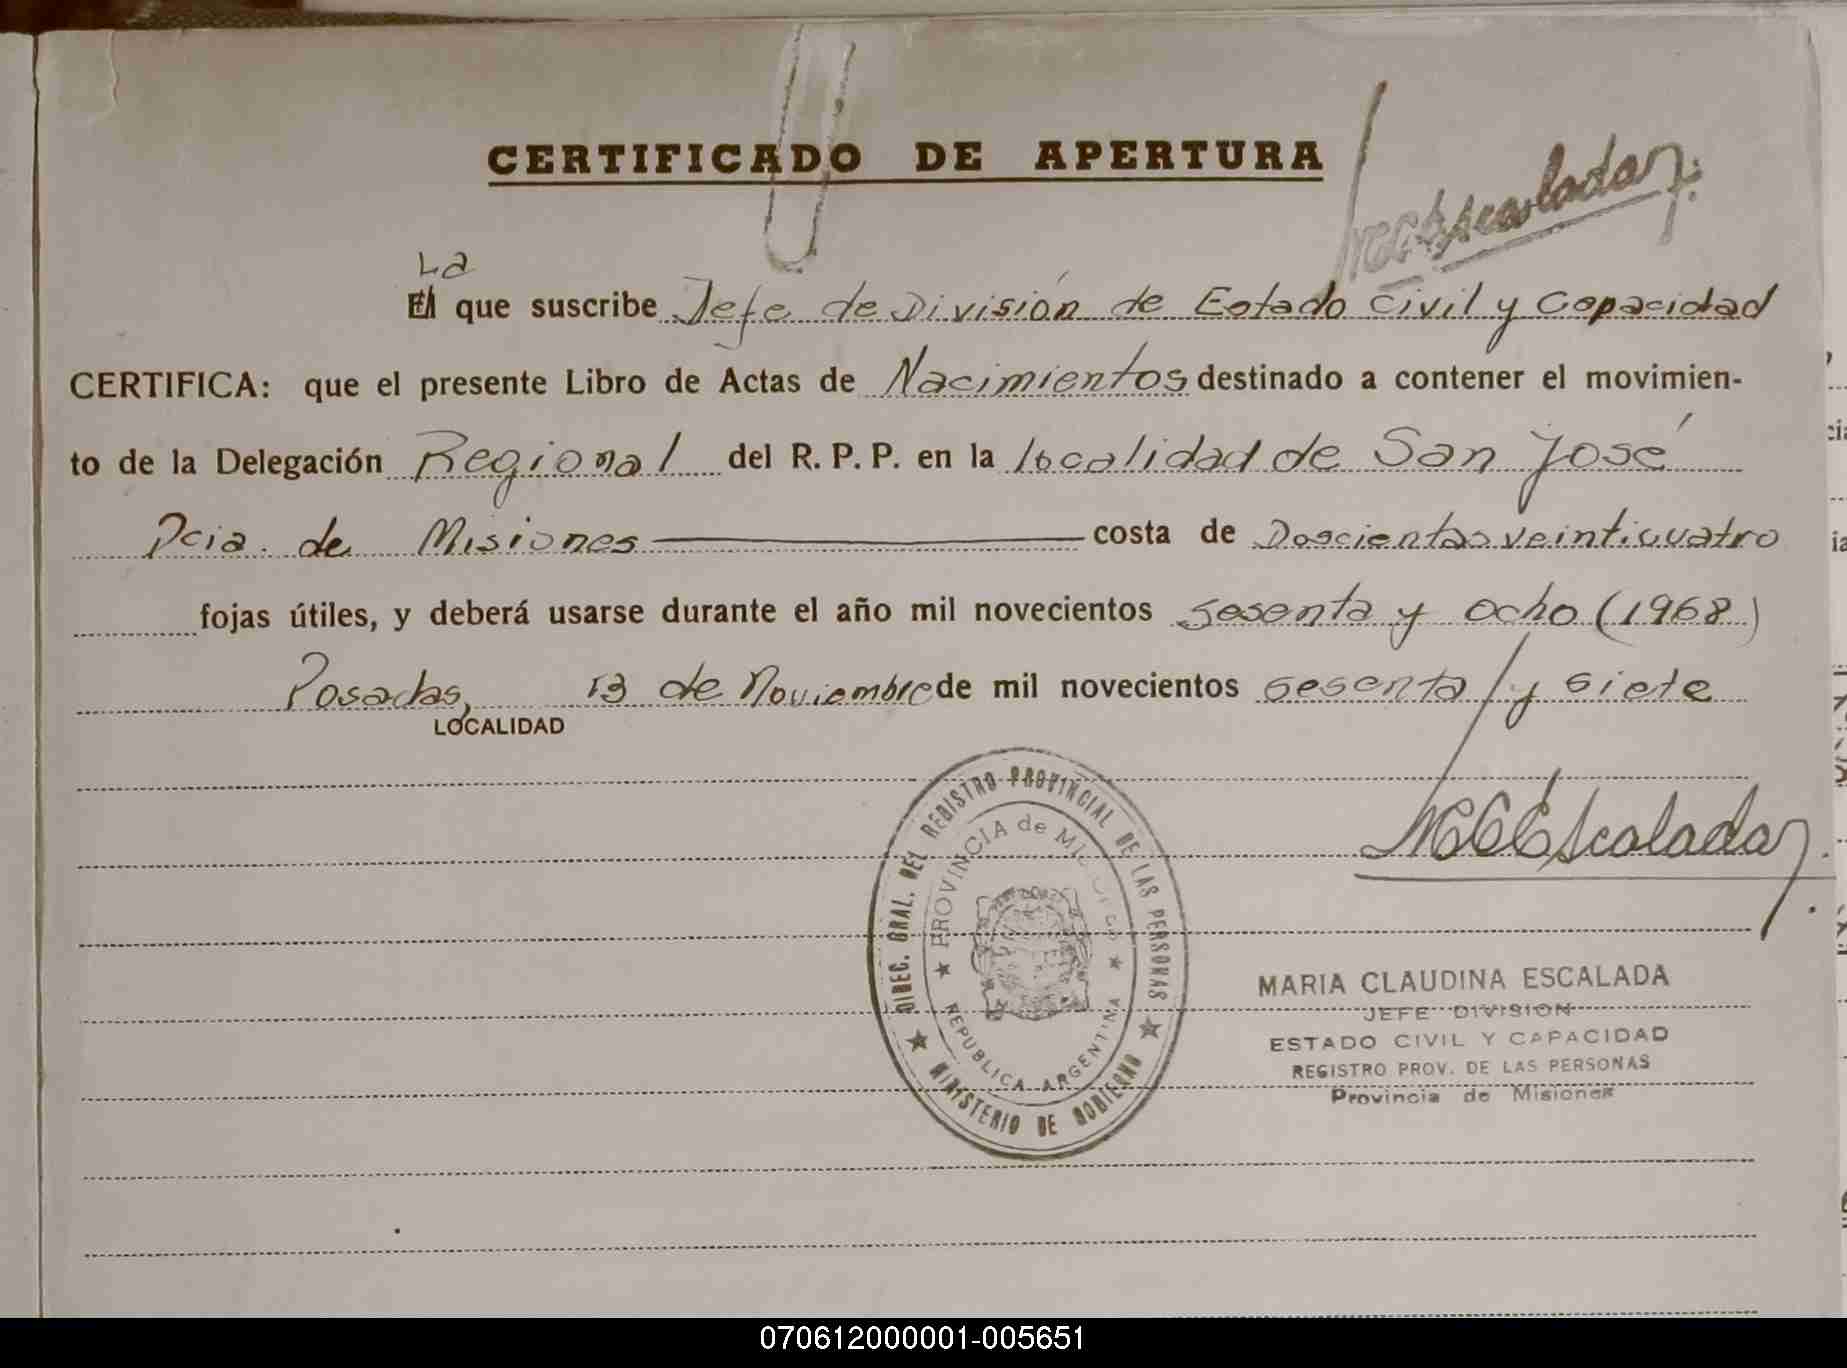 CERTIFICADO DE APERTURA
MCEscalada
La
El que suscribe Jefe de División de Estado Civil y Capacidad
CERTIFICA: que el presente Libro de Actas de Nacimientos destinado a contener el movimien-
to de la Delegación Regional del R. P. P. en la localidad de San José
Pcia. de Misiones costa de Doscientas veinticuatro
fojas útiles, y deberá usarse durante el año mil novecientos sesenta y ocho (1968)
Posadas, 13 de Noviembre de mil novecientos sesenta y siete
LOCALIDAD
MCEscalada
DIREC. GRAL. DEL REGISTRO PROVINCIAL DE LAS PERSONAS
PROVINCIA de MISIONES
REPUBLICA ARGENTINA
MINISTERIO DE GOBIERNO
MARIA CLAUDINA ESCALADA
JEFE DIVISION
ESTADO CIVIL Y CAPACIDAD
REGISTRO PROV. DE LAS PERSONAS
Provincia de Misiones
070612000001-005651